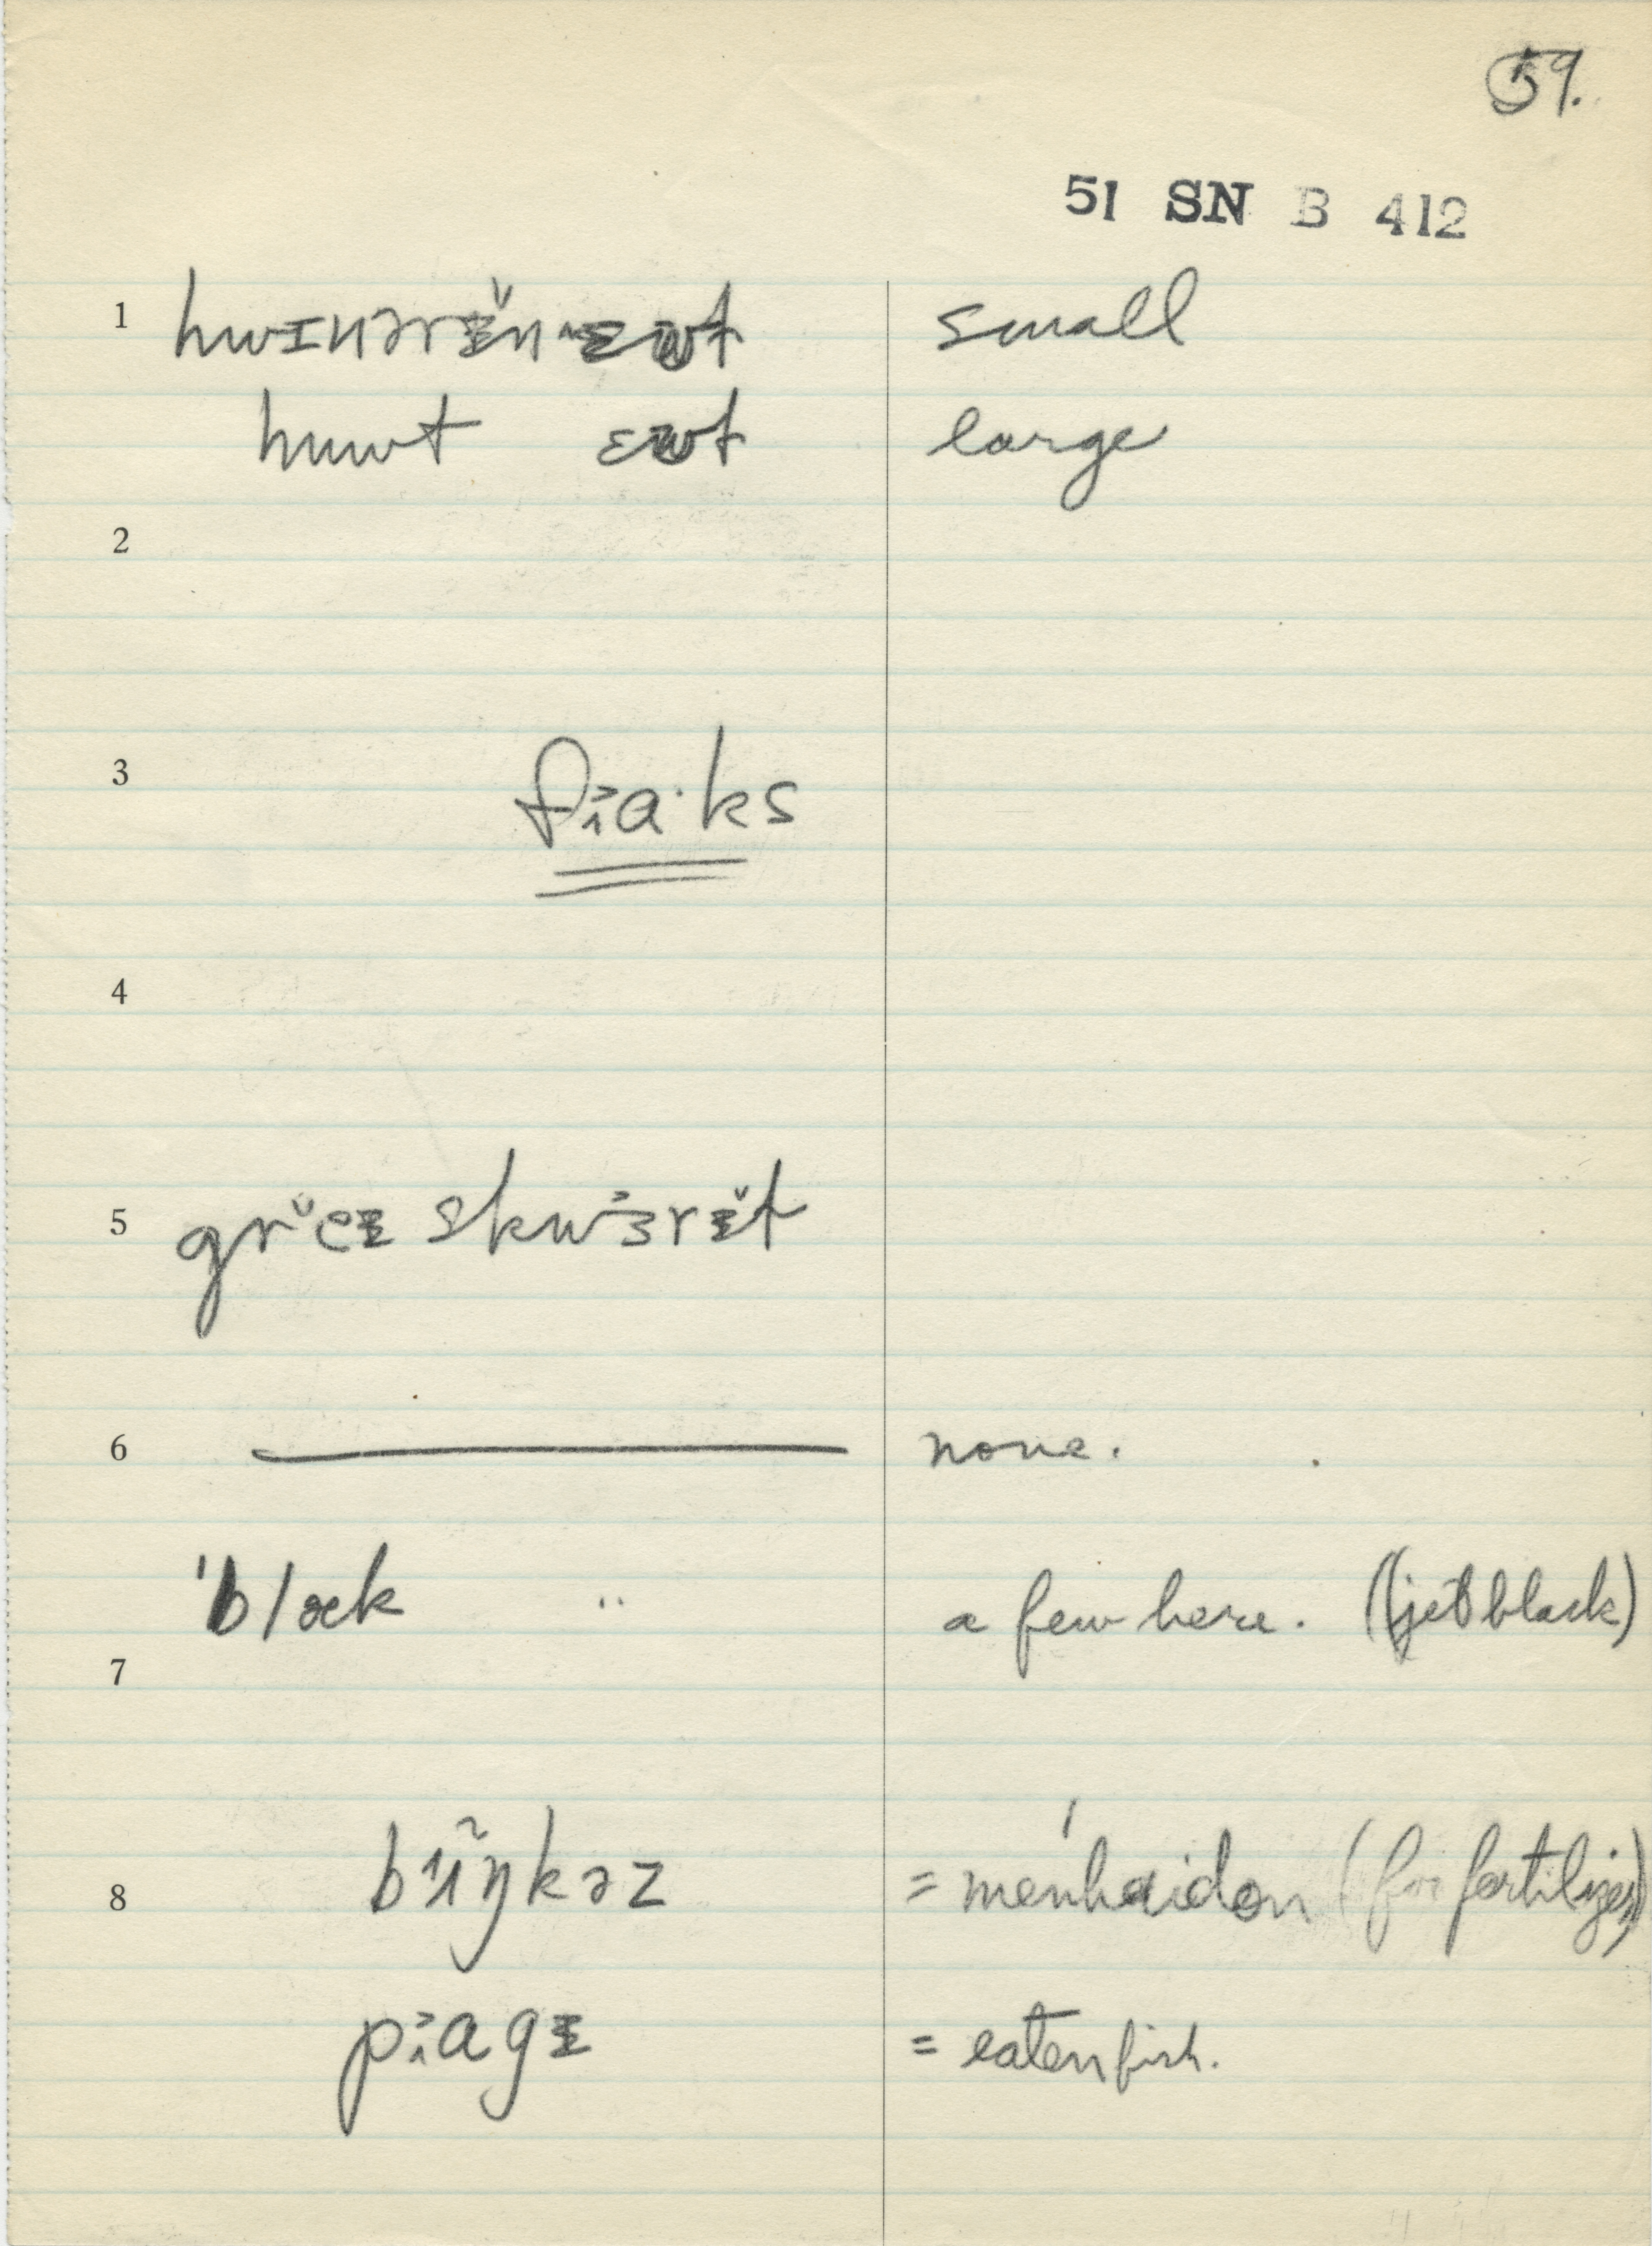 59.
51 SN B 412
1 hwɪnərɪ̆n ɛwt small
huwt ɛwt large
2
3 fiɑ·ks
4
5 grĕɪ skwɜrɪ̆t
6 none.
'blæk " a few here. (jet black)
7
8 bʌŋkəz = menhaidon (for fertilizer)
piagɪ = eaten fish.